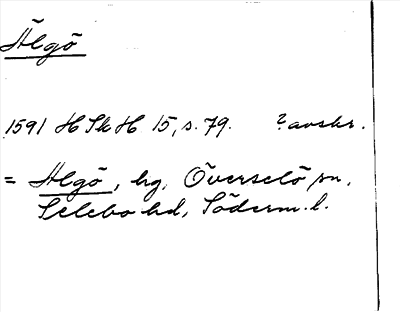 Älgö
1591 H Sk H 15, s. 79. ? avskr.
= Algö, bg, Överselö sn,
Selebo hd, Söderm. l.